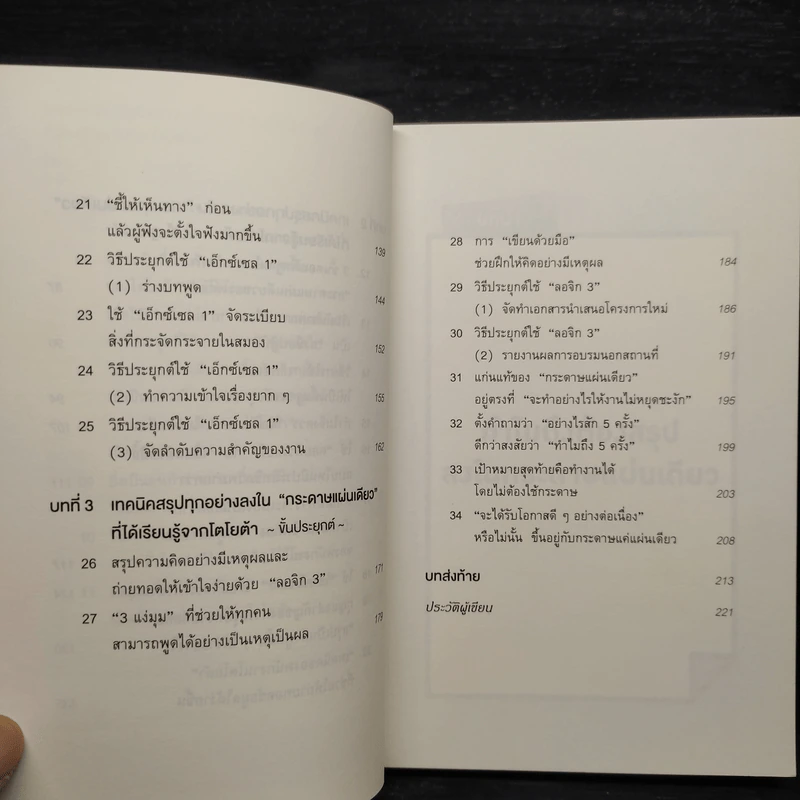 21 "ชี้ให้เห็นทาง" ก่อน
แล้วผู้ฟังจะตั้งใจฟังมากขึ้น 139
22 วิธีประยุกต์ใช้ "เอ็กซ์เซล 1"
(1) ร่างบทพูด 144
23 ใช้ "เอ็กซ์เซล 1" จัดระเบียบ
สิ่งที่กระจัดกระจายในสมอง 152
24 วิธีประยุกต์ใช้ "เอ็กซ์เซล 1"
(2) ทำความเข้าใจเรื่องยาก ๆ 155
25 วิธีประยุกต์ใช้ "เอ็กซ์เซล 1"
(3) จัดลำดับความสำคัญของงาน 162
บทที่ 3 เทคนิคสรุปทุกอย่างลงใน "กระดาษแผ่นเดียว"
ที่ได้เรียนรู้จากโตโยต้า ~ ขั้นประยุกต์ ~
26 สรุปความคิดอย่างมีเหตุผลและ
ถ่ายทอดให้เข้าใจง่ายด้วย "ลอจิก 3" 171
27 "3 แง่มุม" ที่ช่วยให้ทุกคน
สามารถพูดได้อย่างเป็นเหตุเป็นผล 179
28 การ "เขียนด้วยมือ"
ช่วยฝึกให้คิดอย่างมีเหตุผล 184
29 วิธีประยุกต์ใช้ "ลอจิก 3"
(1) จัดทำเอกสารนำเสนอโครงการใหม่ 186
30 วิธีประยุกต์ใช้ "ลอจิก 3"
(2) รายงานผลการอบรมนอกสถานที่ 191
31 แก่นแท้ของ "กระดาษแผ่นเดียว"
อยู่ตรงที่ "จะทำอย่างไรให้งานไม่หยุดชะงัก" 195
32 ตั้งคำถามว่า "อย่างไรสัก 5 ครั้ง"
ดีกว่าสงสัยว่า "ทำไมถึง 5 ครั้ง" 199
33 เป้าหมายสุดท้ายคือทำงานได้
โดยไม่ต้องใช้กระดาษ 203
34 "จะได้รับโอกาสดี ๆ อย่างต่อเนื่อง"
หรือไม่นั้น ขึ้นอยู่กับกระดาษแค่แผ่นเดียว 208
บทส่งท้าย 213
ประวัติผู้เขียน 221